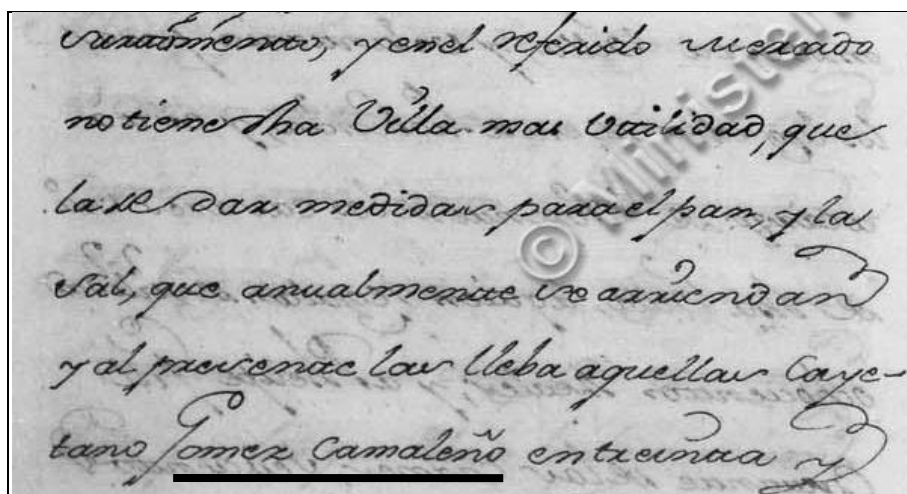 surtimiento, y en el referido mercado
no tiene dha Villa mas utilidad, que
la de dar medidas para el pan, y la
sal, que anualmente se arriendan
y al presente las lleba aquellas Caye-
tano Gomez Camaleño en treinta y
© Ministerio